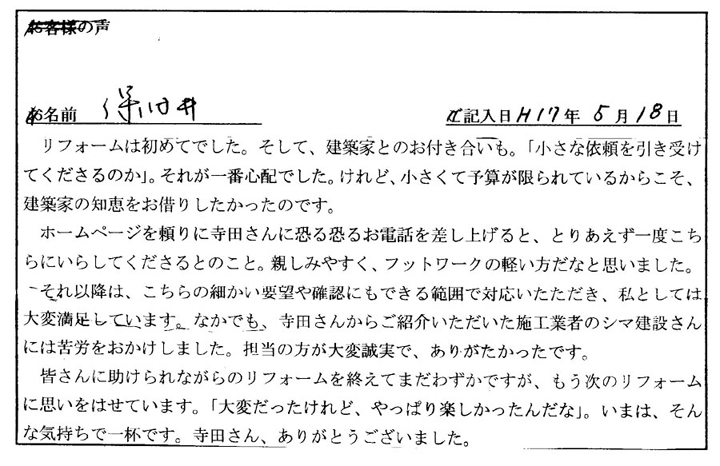 お客様の声
お名前 保田井
ご記入日 H17年 5月18日
リフォームは初めてでした。そして、建築家とのお付き合いも。「小さな依頼を引き受け
てくださるのか」。それが一番心配でした。けれど、小さくて予算が限られているからこそ、
建築家の知恵をお借りしたかったのです。
ホームページを頼りに寺田さんに恐る恐るお電話を差し上げると、とりあえず一度こち
らにいらしてくださるとのこと。親しみやすく、フットワークの軽い方だなと思いました。
それ以降は、こちらの細かい要望や確認にもできる範囲で対応いただき、私としては
大変満足しています。なかでも、寺田さんからご紹介いただいた施工業者のシマ建設さん
には苦労をおかけしました。担当の方が大変誠実で、ありがたかったです。
皆さんに助けられながらのリフォームを終えてまだわずかですが、もう次のリフォーム
に思いをはせています。「大変だったけれど、やっぱり楽しかったんだな」。いまは、そん
な気持ちで一杯です。寺田さん、ありがとうございました。